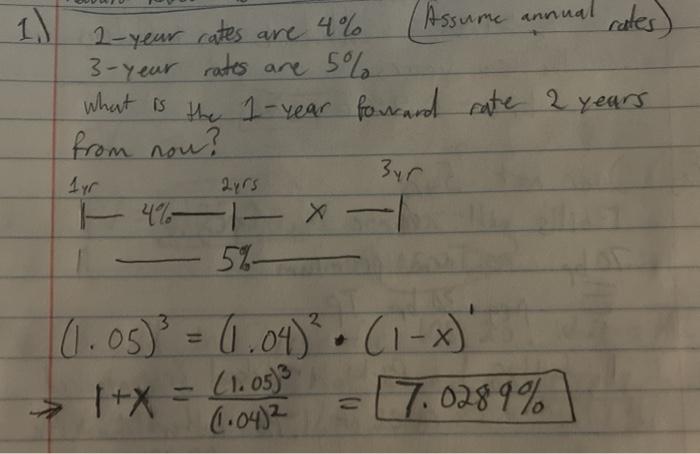 1.) 2-year rates are 4% (Assume annual rates)
3-year rates are 5%
What is the 1-year forward rate 2 years
from now?
1yr 2yrs 3yr
|— 4% —|— x —|
| —— 5% ——
(1.05)³ = (1.04)² • (1-x)¹
→ 1+x = (1.05)³/(1.04)² = 7.0289%